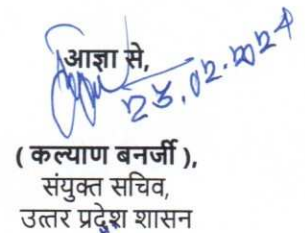 आज्ञा से,
23.02.2024
( कल्याण बनर्जी ),
संयुक्त सचिव,
उत्तर प्रदेश शासन